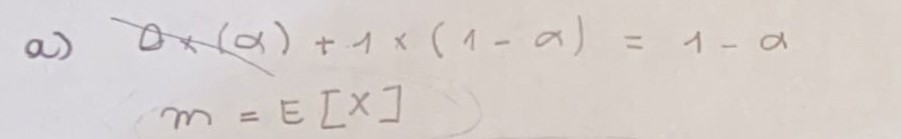 a) 0 × (α) + 1 × (1 - α) = 1 - α
m = E[X]